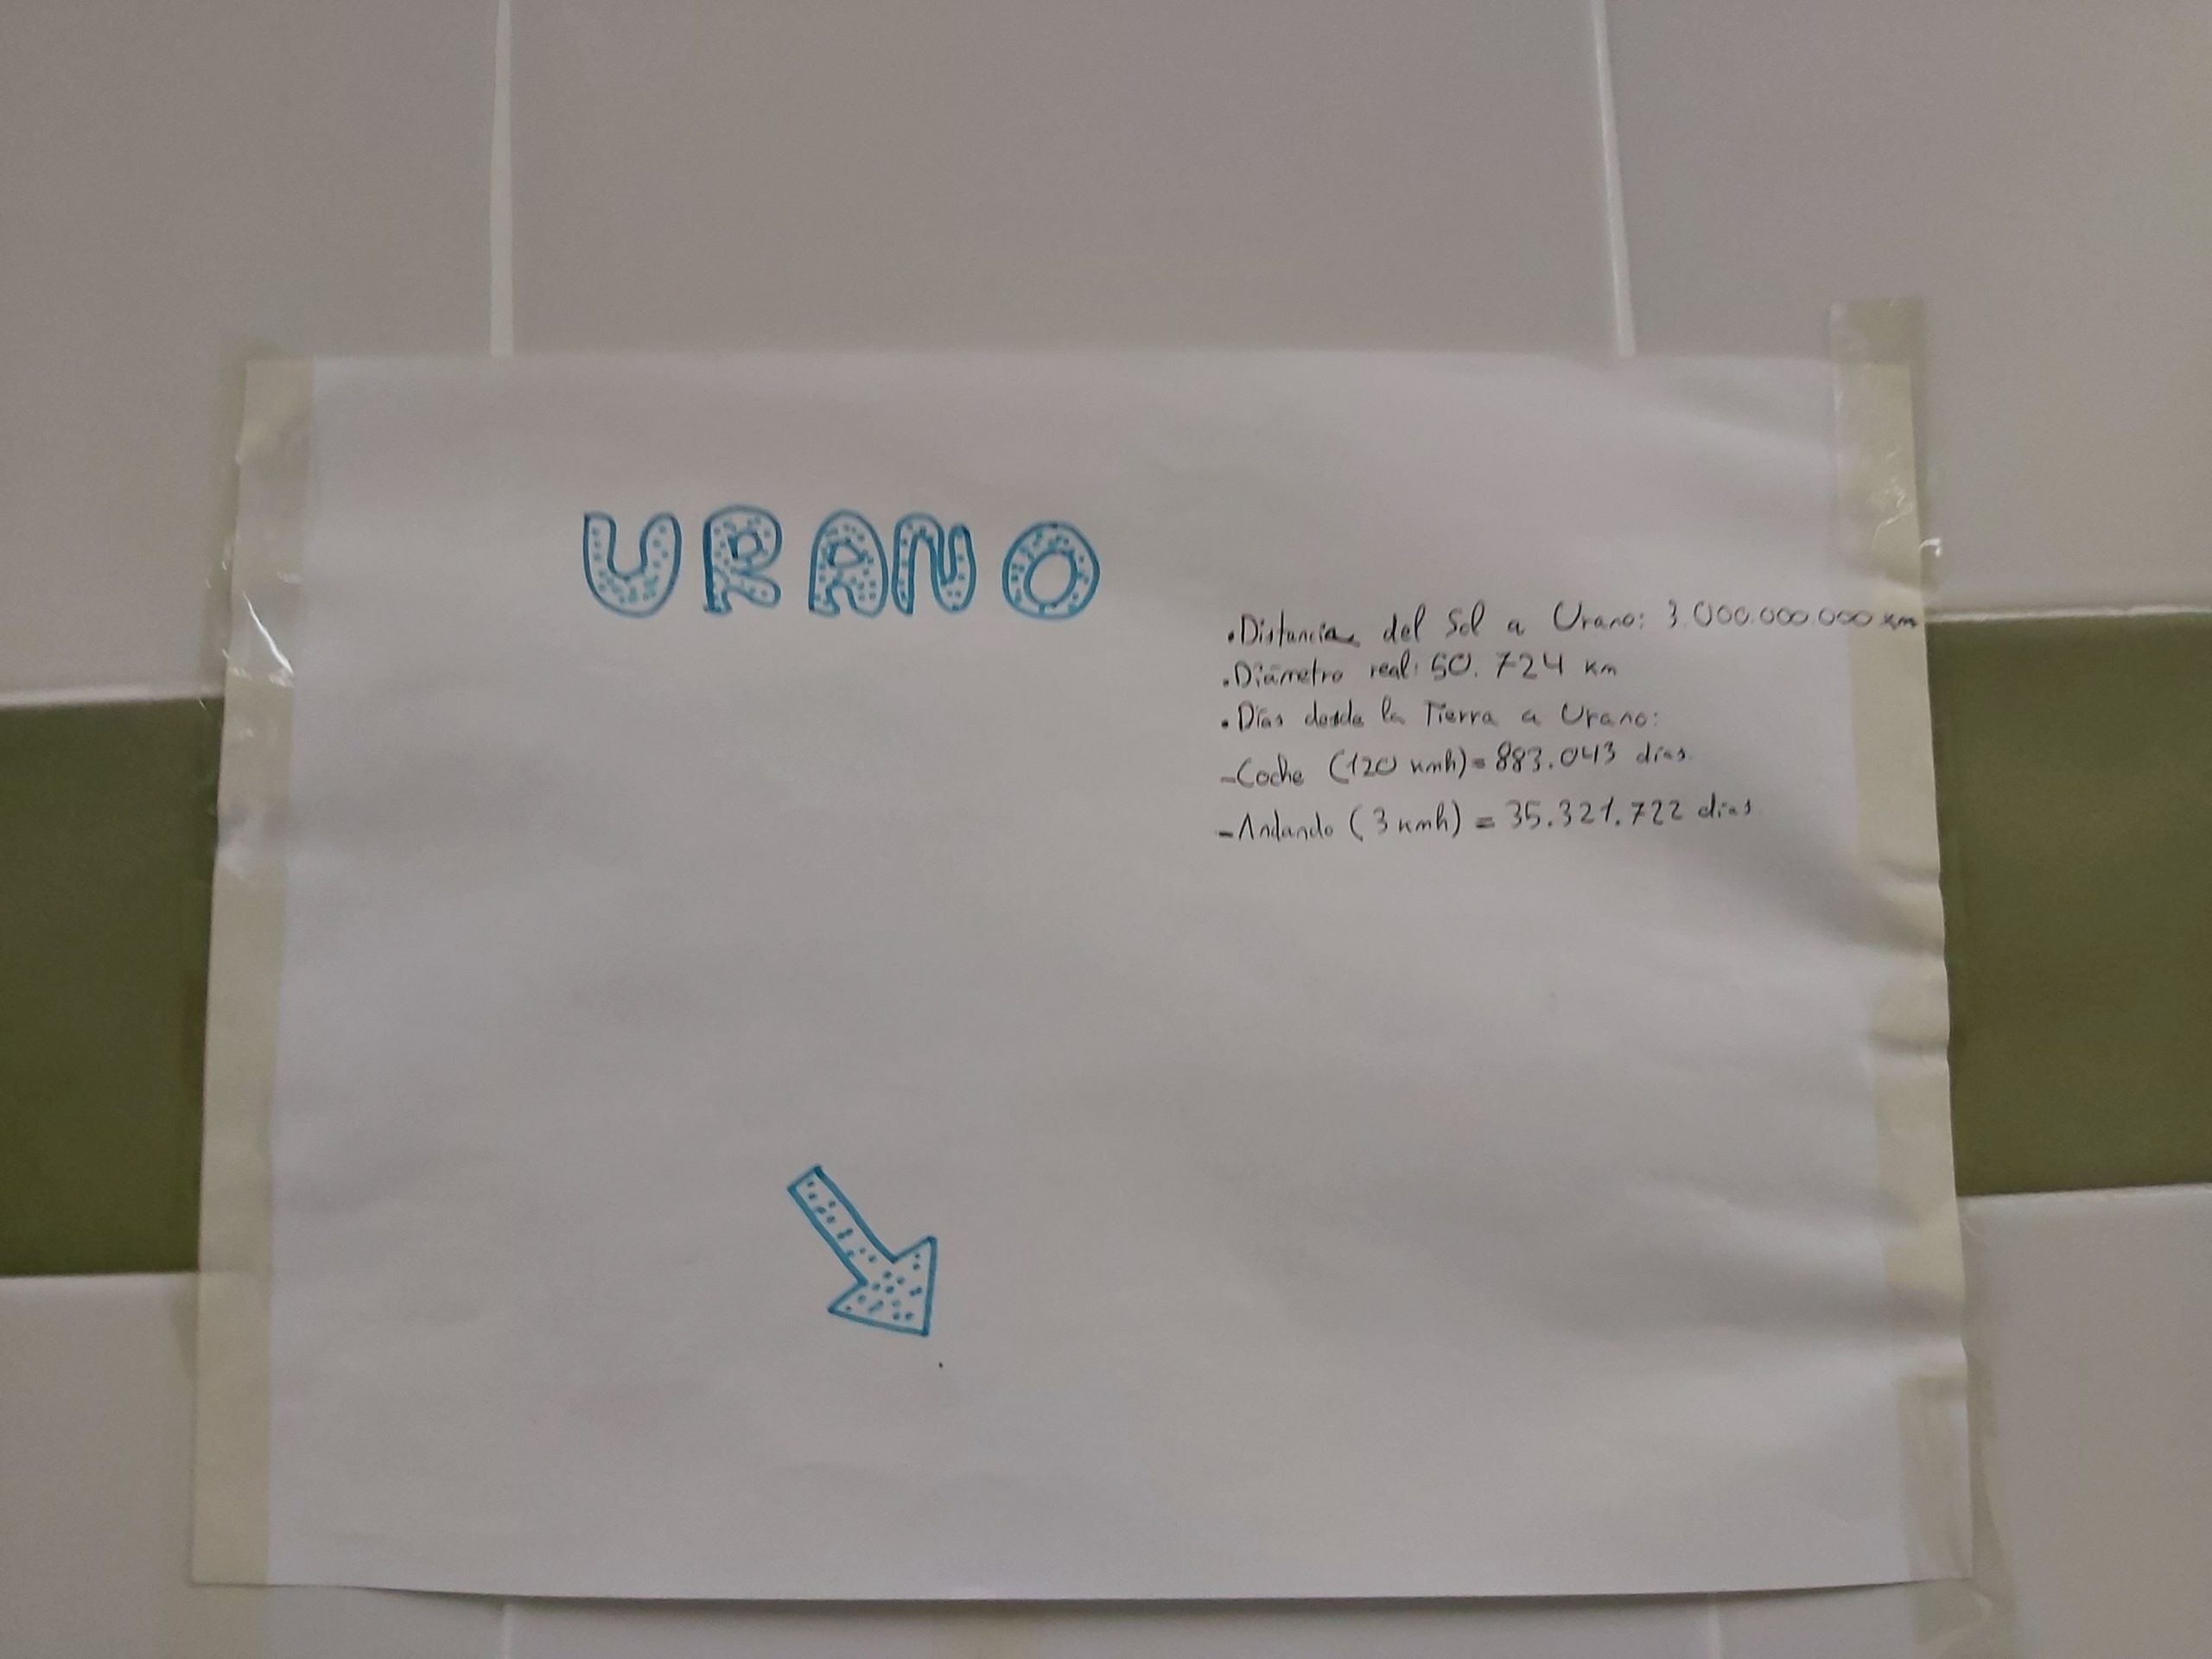 URANO
•Distancia del Sol a Urano: 3.000.000.000 km
•Diámetro real: 50.724 km
•Días desde la Tierra a Urano:
-Coche (120 kmh)= 883.043 días
-Andando (3 kmh) = 35.321.722 días